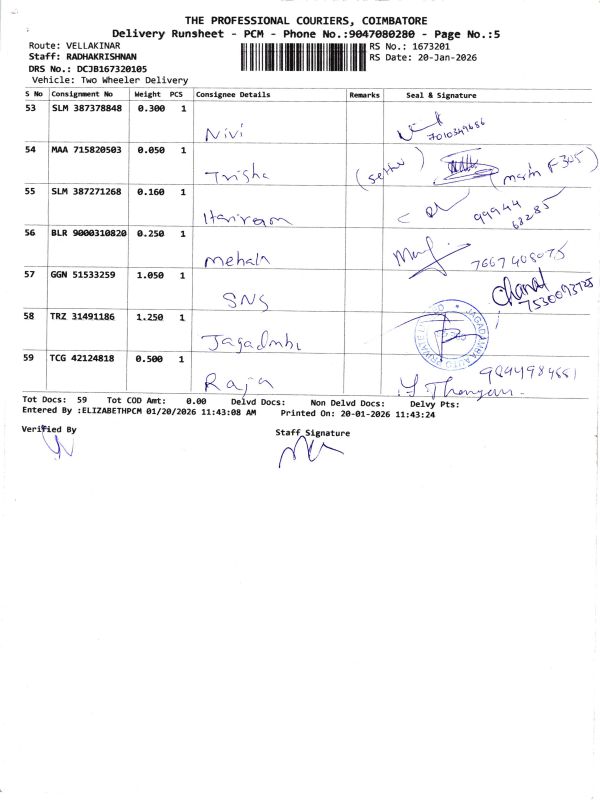 THE PROFESSIONAL COURIERS, COIMBATORE
Delivery Runsheet - PCM - Phone No.:9047080280 - Page No.:5
Route: VELLAKINAR
RS No.: 1673201
Staff: RADHAKRISHNAN
RS Date: 20-Jan-2026
DRS No.: DCJB167320105
Vehicle: Two Wheeler Delivery
S No Consignment No Weight PCS Consignee Details Remarks Seal & Signature
53 SLM 387378848 0.300 1
Nivi
54 MAA 715820503 0.050 1
Trisha
55 SLM 387271268 0.160 1
Hariram
99944
63285
56 BLR 9000310820 0.250 1
Mehala
57 GGN 51533259 1.050 1
SNS
58 TRZ 31491186 1.250 1
Jagadmba
59 TCG 42124818 0.500 1
Raja
Tot Docs: 59 Tot COD Amt: 0.00 Delvd Docs: Non Delvd Docs: Delvy Pts:
Entered By :ELIZABETHPCM 01/20/2026 11:43:08 AM Printed On: 20-01-2026 11:43:24
Verified By
Staff Signature